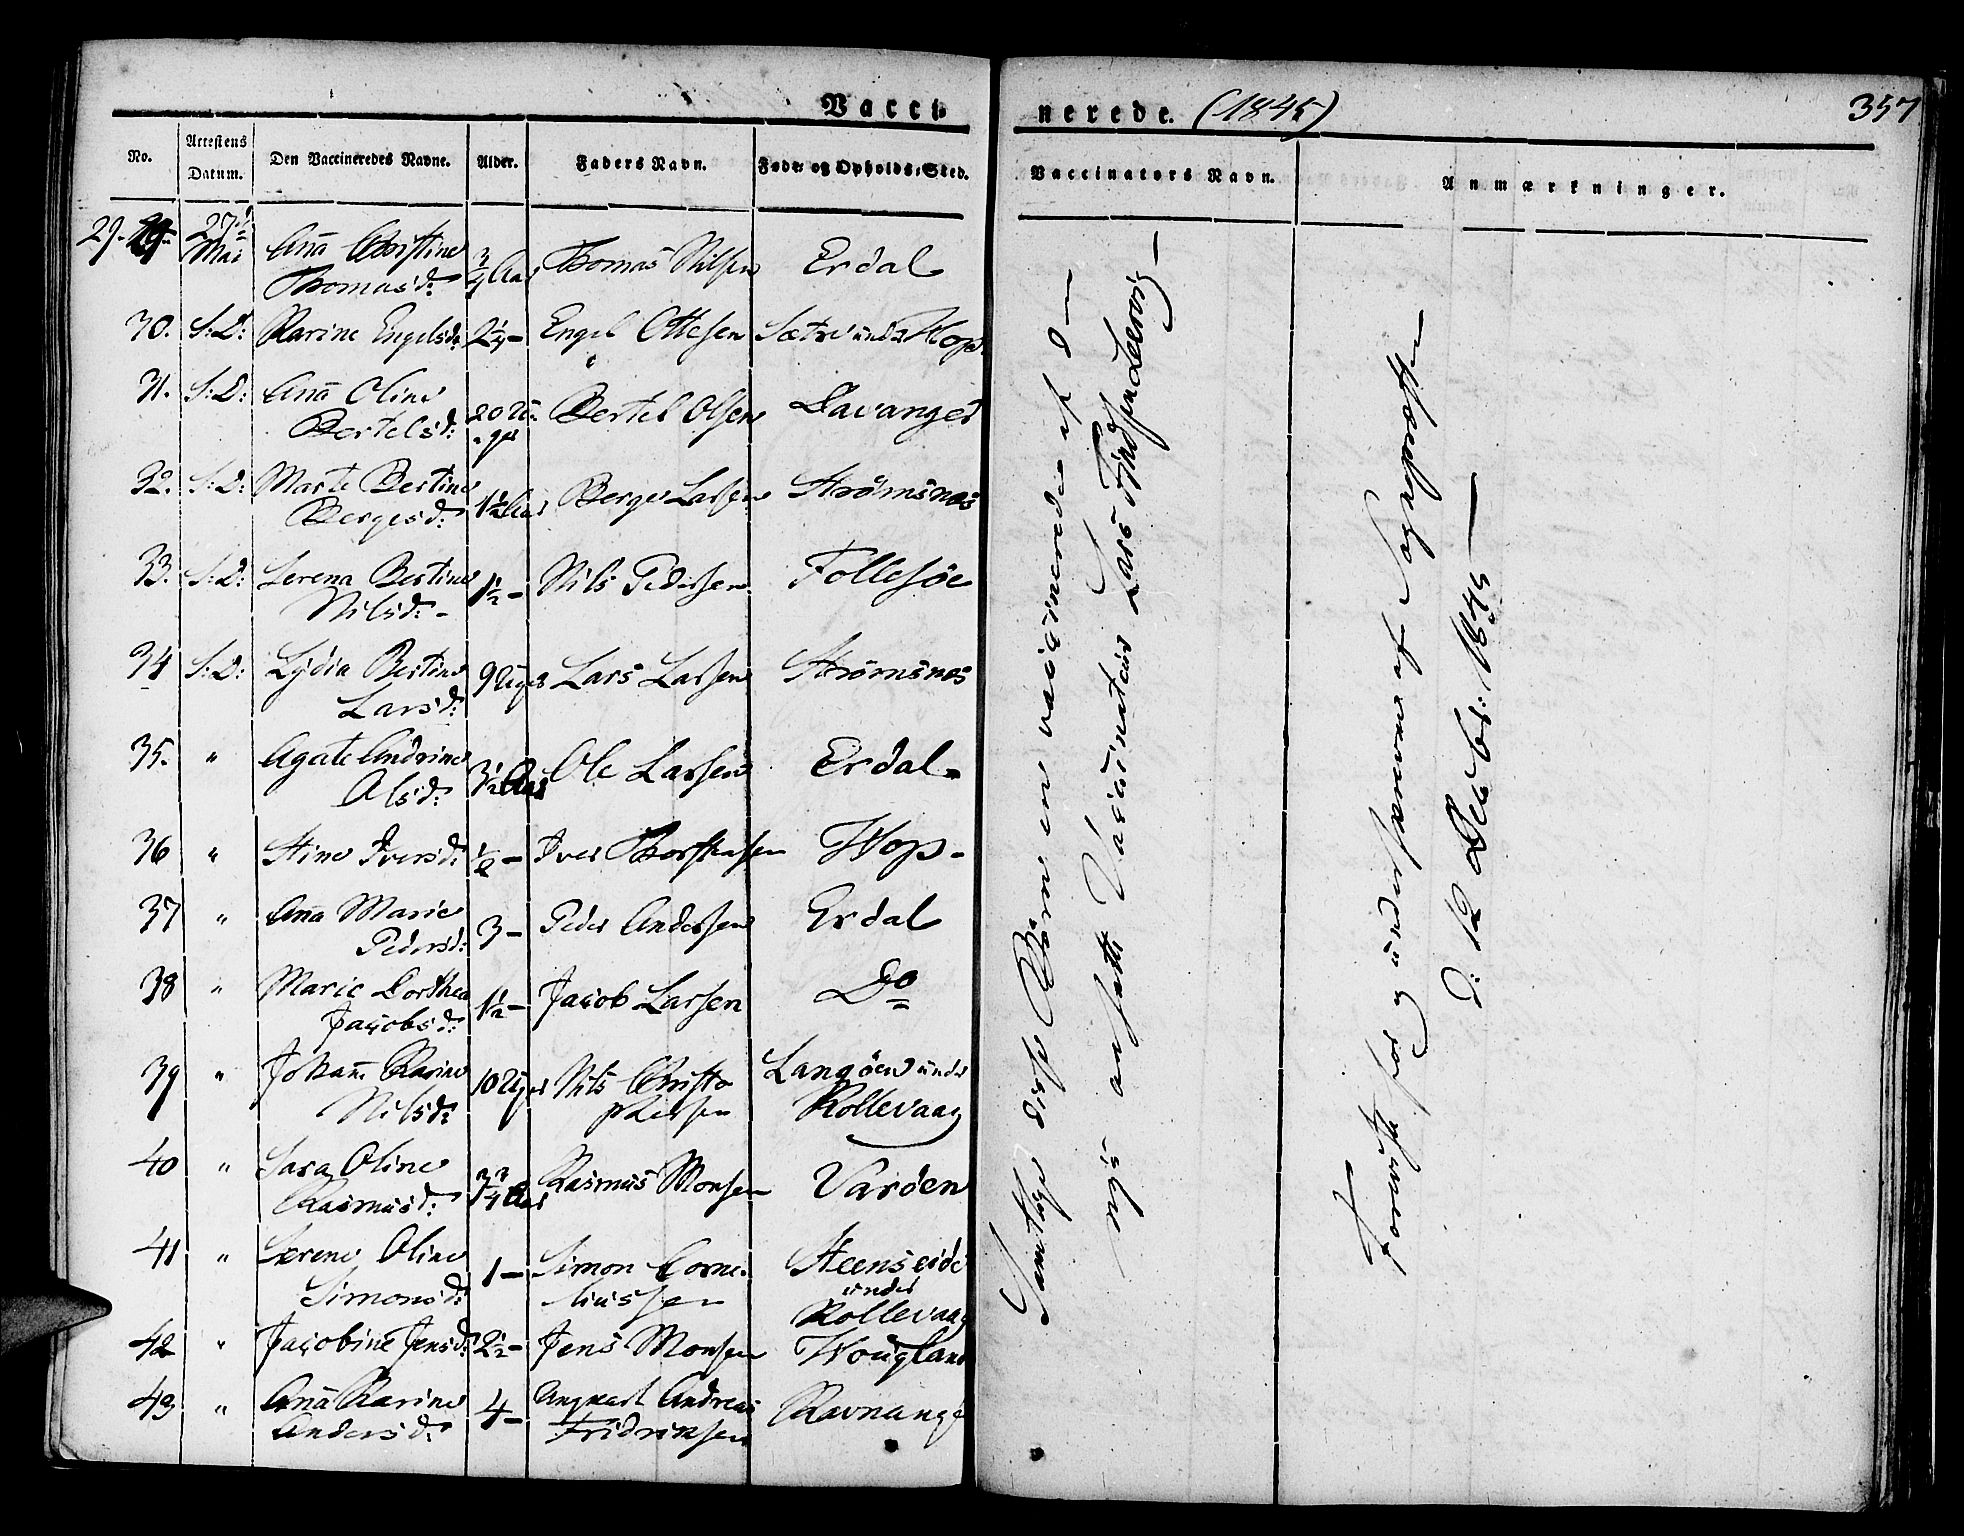 Vacci-
nerede. (1845)
357
No.
Attestens Datum.
Den Vaccineredes Navne.
Alder.
Faders Navn.
Føde og Opholds-Sted.
Vaccinators Navn.
Anmærkninger.
29. 27de Mai Anna Christine Thomasd: 3/4 Aar Thomas Nilsen Erdal
30. S:D: Karine Engelsd: 2 1/4 – Engel Ottesen Sætre under Hop.
31. S:D: Anna Oline Bertelsd: 20 Uger Bertel Olsen Davanger
32. S:D: Marte Bertine Bergesd: 1 1/2 Aar Berge Larsen Strømsnæs
33. S:D: Serena Bertine Nilsd: – 1 1/2 – Nils Pedersen Follesøe
34 S:D: Lydia Bertine Larsd: 9 Uger Lars Larsen Strømsnæs
35. " Agate Andrine Olsd: 3 1/2 Aar Ole Larsen Erdal –
36 " Stine Iversd: 1/2 – Iver Thorstensen Hop –
37 " Anna Marie Pedersd: 3 – Peder Andersen Erdal
38 " Marie Dorthea Jacobsd: 1 1/2 – Jacob Larsen Do
39 " Johanne Karine Nilsd: 10 Uger Nils Christophersen Langøen under Kollevaag
40 " Sara Oline Rasmusd: 3 3/4 Aar Rasmus Monsen Varøen
41 " Serene Oline Simonsd: 1 – Simon Corneliussen Steenseide under Kollevaag
42 " Jacobine Jensd: 2 1/2 – Jens Monsen Hougland
43 " Anna Karine Andersd: 4 – Andreas Fridriksen Ravnang
Samtlige disse Børn ere vaccinerede af den
nys ansatte Vaccinateur Lars Findsen Leervig –
Foreviist for og underskreven af Sogneprosten
d: 12 Decbr: 1845 –